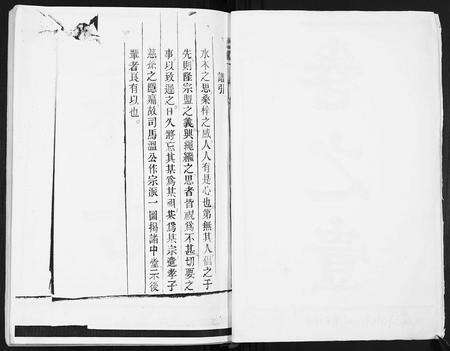 譜引
水木之思桑梓之感人人有是心也第無其人倡之于
先則隆宗盟之義與繩繼之思者皆視爲不甚切要之
事以致遲之日久將忘其某爲某祖某爲某宗遺孝子
慈孫之隱痛故司馬溫公作宗派一圖揭諸中堂示後
輩者良有以也